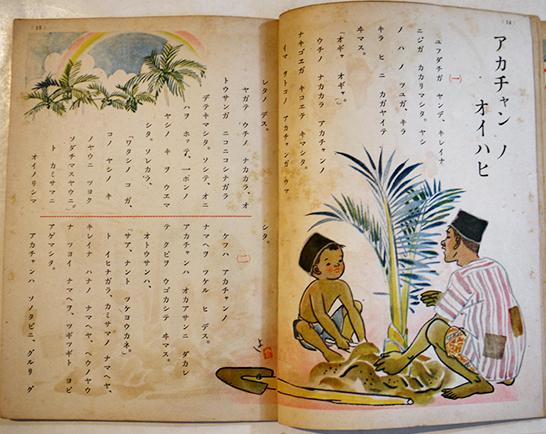 (14)
アカチャン ノ
オイハヒ
(一)
ユフダチガ ヤンデ、キレイナ
ニジガ カカリマシタ。ヤシ
ノ ハノ ツユガ、キラ
キラ ヒニ カガヤイテ
ヰマス。
「オギャ オギャ。」
ウチノ ナカカラ アカチャンノ
ナキゴヱガ キコエテ キマシタ。
イマ サトコノ アカチャンガ ウマ
(15)
レタノ デス。
ヤガテ ウチノ ナカカラ、オ
トウサンガ ニコニコシナガラ
デヰキマシタ。ソシテ、オニ
ハヲ ホッテ、一ポンノ
ヤシノ キヲ ウエマ
シタ。ソレカラ、
「ワタシノ コガ、
コノ ヤシノ キ
ノヤウニ ツヨク
ソダチマスヤウニ。」
ト カミサマニ
オイノリシマ
シタ。
(二)
ケフハ アカチャンノ
ナマヘヲ ツケル ヒ デス。
アカチャンハ オカアサンニ ダカレ
テ クビヲ ウゴカシテ ヰマス。
オトウサンハ、
「サア、ナント ツケヨウカネ。」
ト イヒナガラ カミサマノ ナマヘヤ、
キレイナ ハナノ ナマヘヤ、ヘウノヤウ
ナ ツヨイ ナマヘヲ、ツギツギト ヨビ
アゲマシタ。
アカチャンハ ソノタビニ、グルリ グ